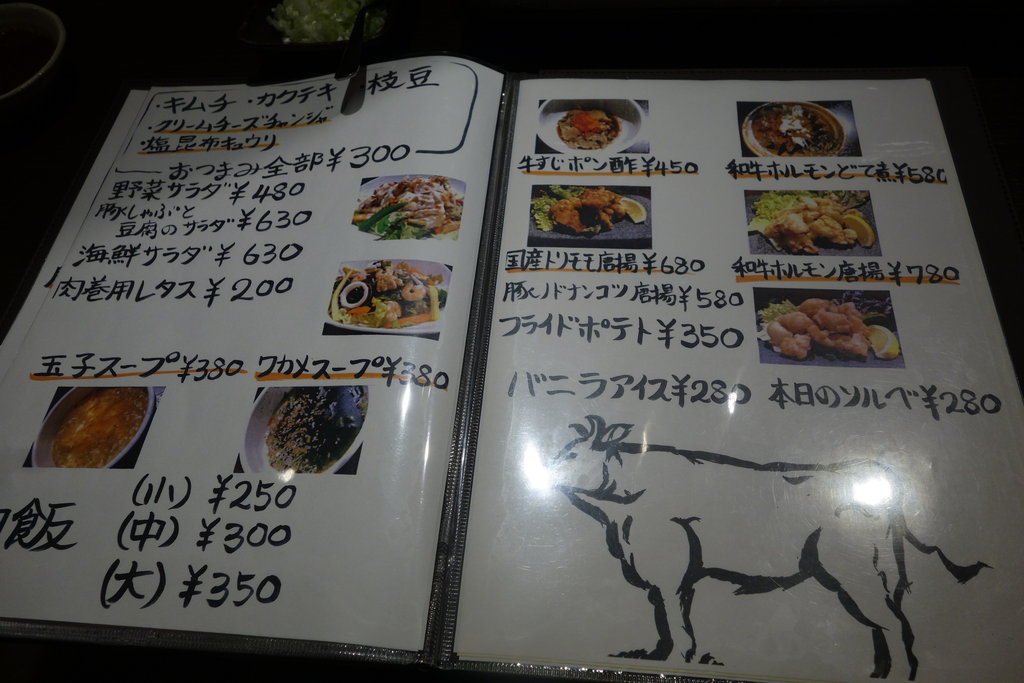 ・キムチ・カクテキ・枝豆
・クリームチーズチャンジャ
・塩昆布キュウリ
おつまみ全部¥300
野菜サラダ¥480
豚しゃぶと
豆腐のサラダ¥630
海鮮サラダ¥630
肉巻用レタス¥200
玉子スープ¥380 ワカメスープ¥380
飯
(小)¥250
(中)¥300
(大)¥350
牛すじポン酢¥450
和牛ホルモンどて煮¥580
国産トリモモ唐揚¥680
和牛ホルモン唐揚¥780
豚ノドナンコツ唐揚¥580
フライドポテト¥350
バニラアイス¥280 本日のソルベ¥280